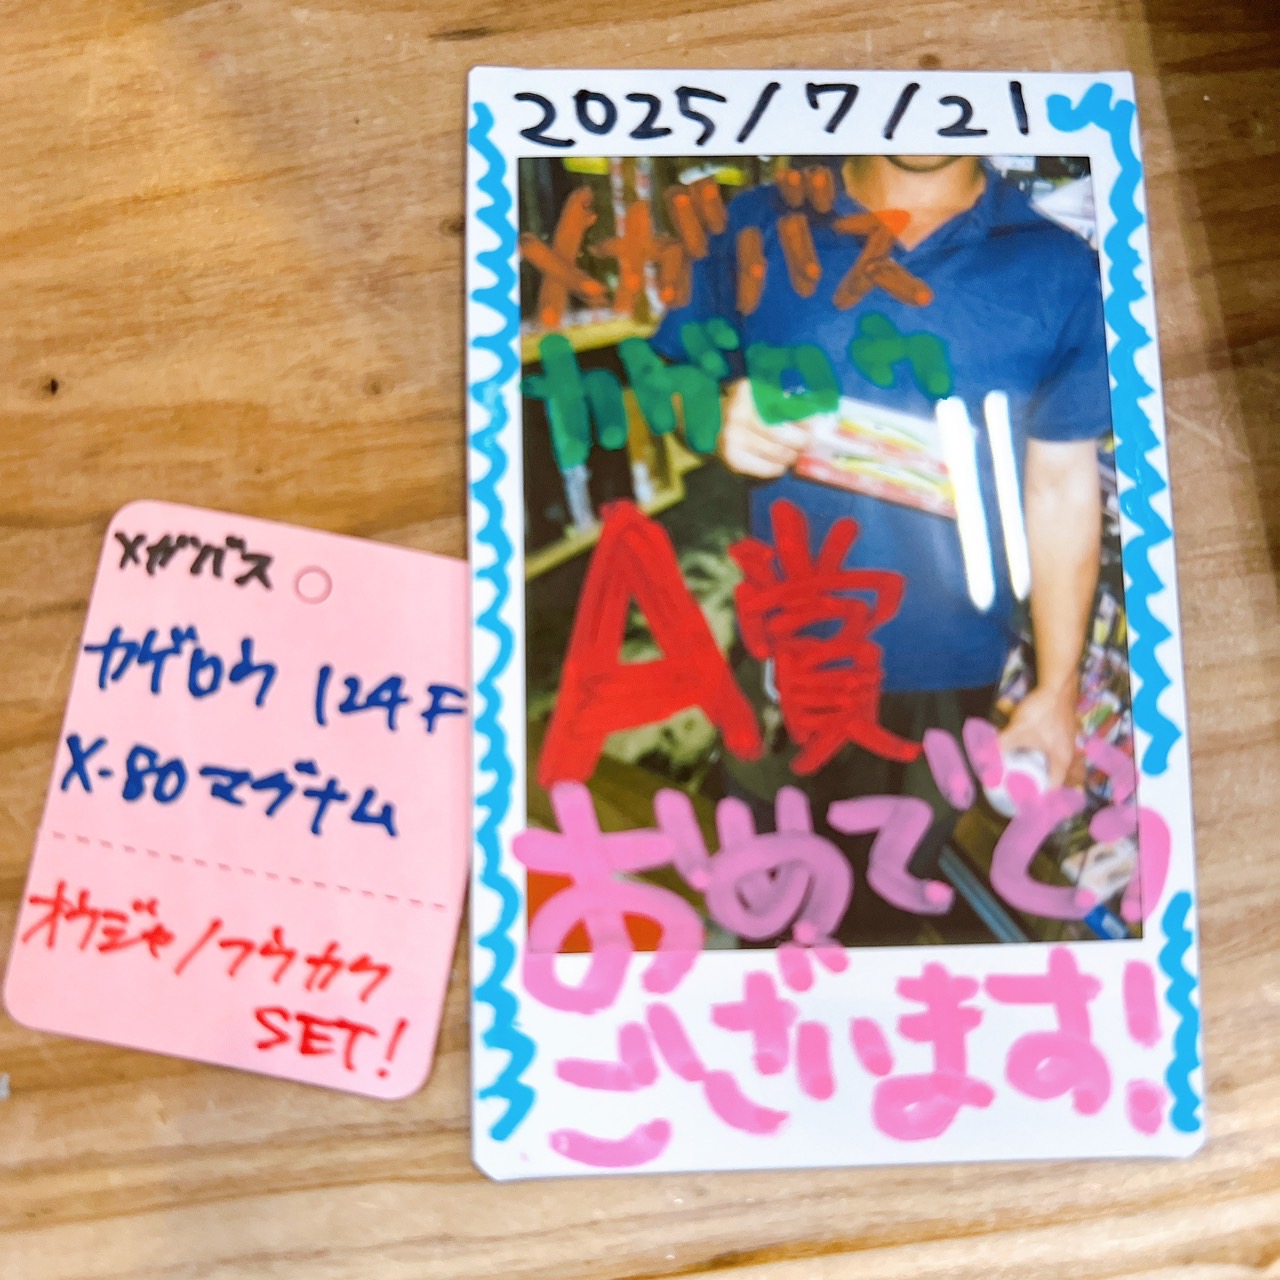 2025/7/21
メガバス
カゲロウ
A賞
おめでとう
ございます!
メガバス
カゲロウ 124F
X-80マグナム
オウジャ/フウカク
SET!